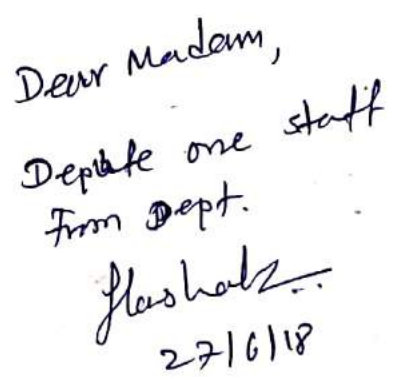 Dear Madam,
Depute one staff
From Dept.
27/6/18